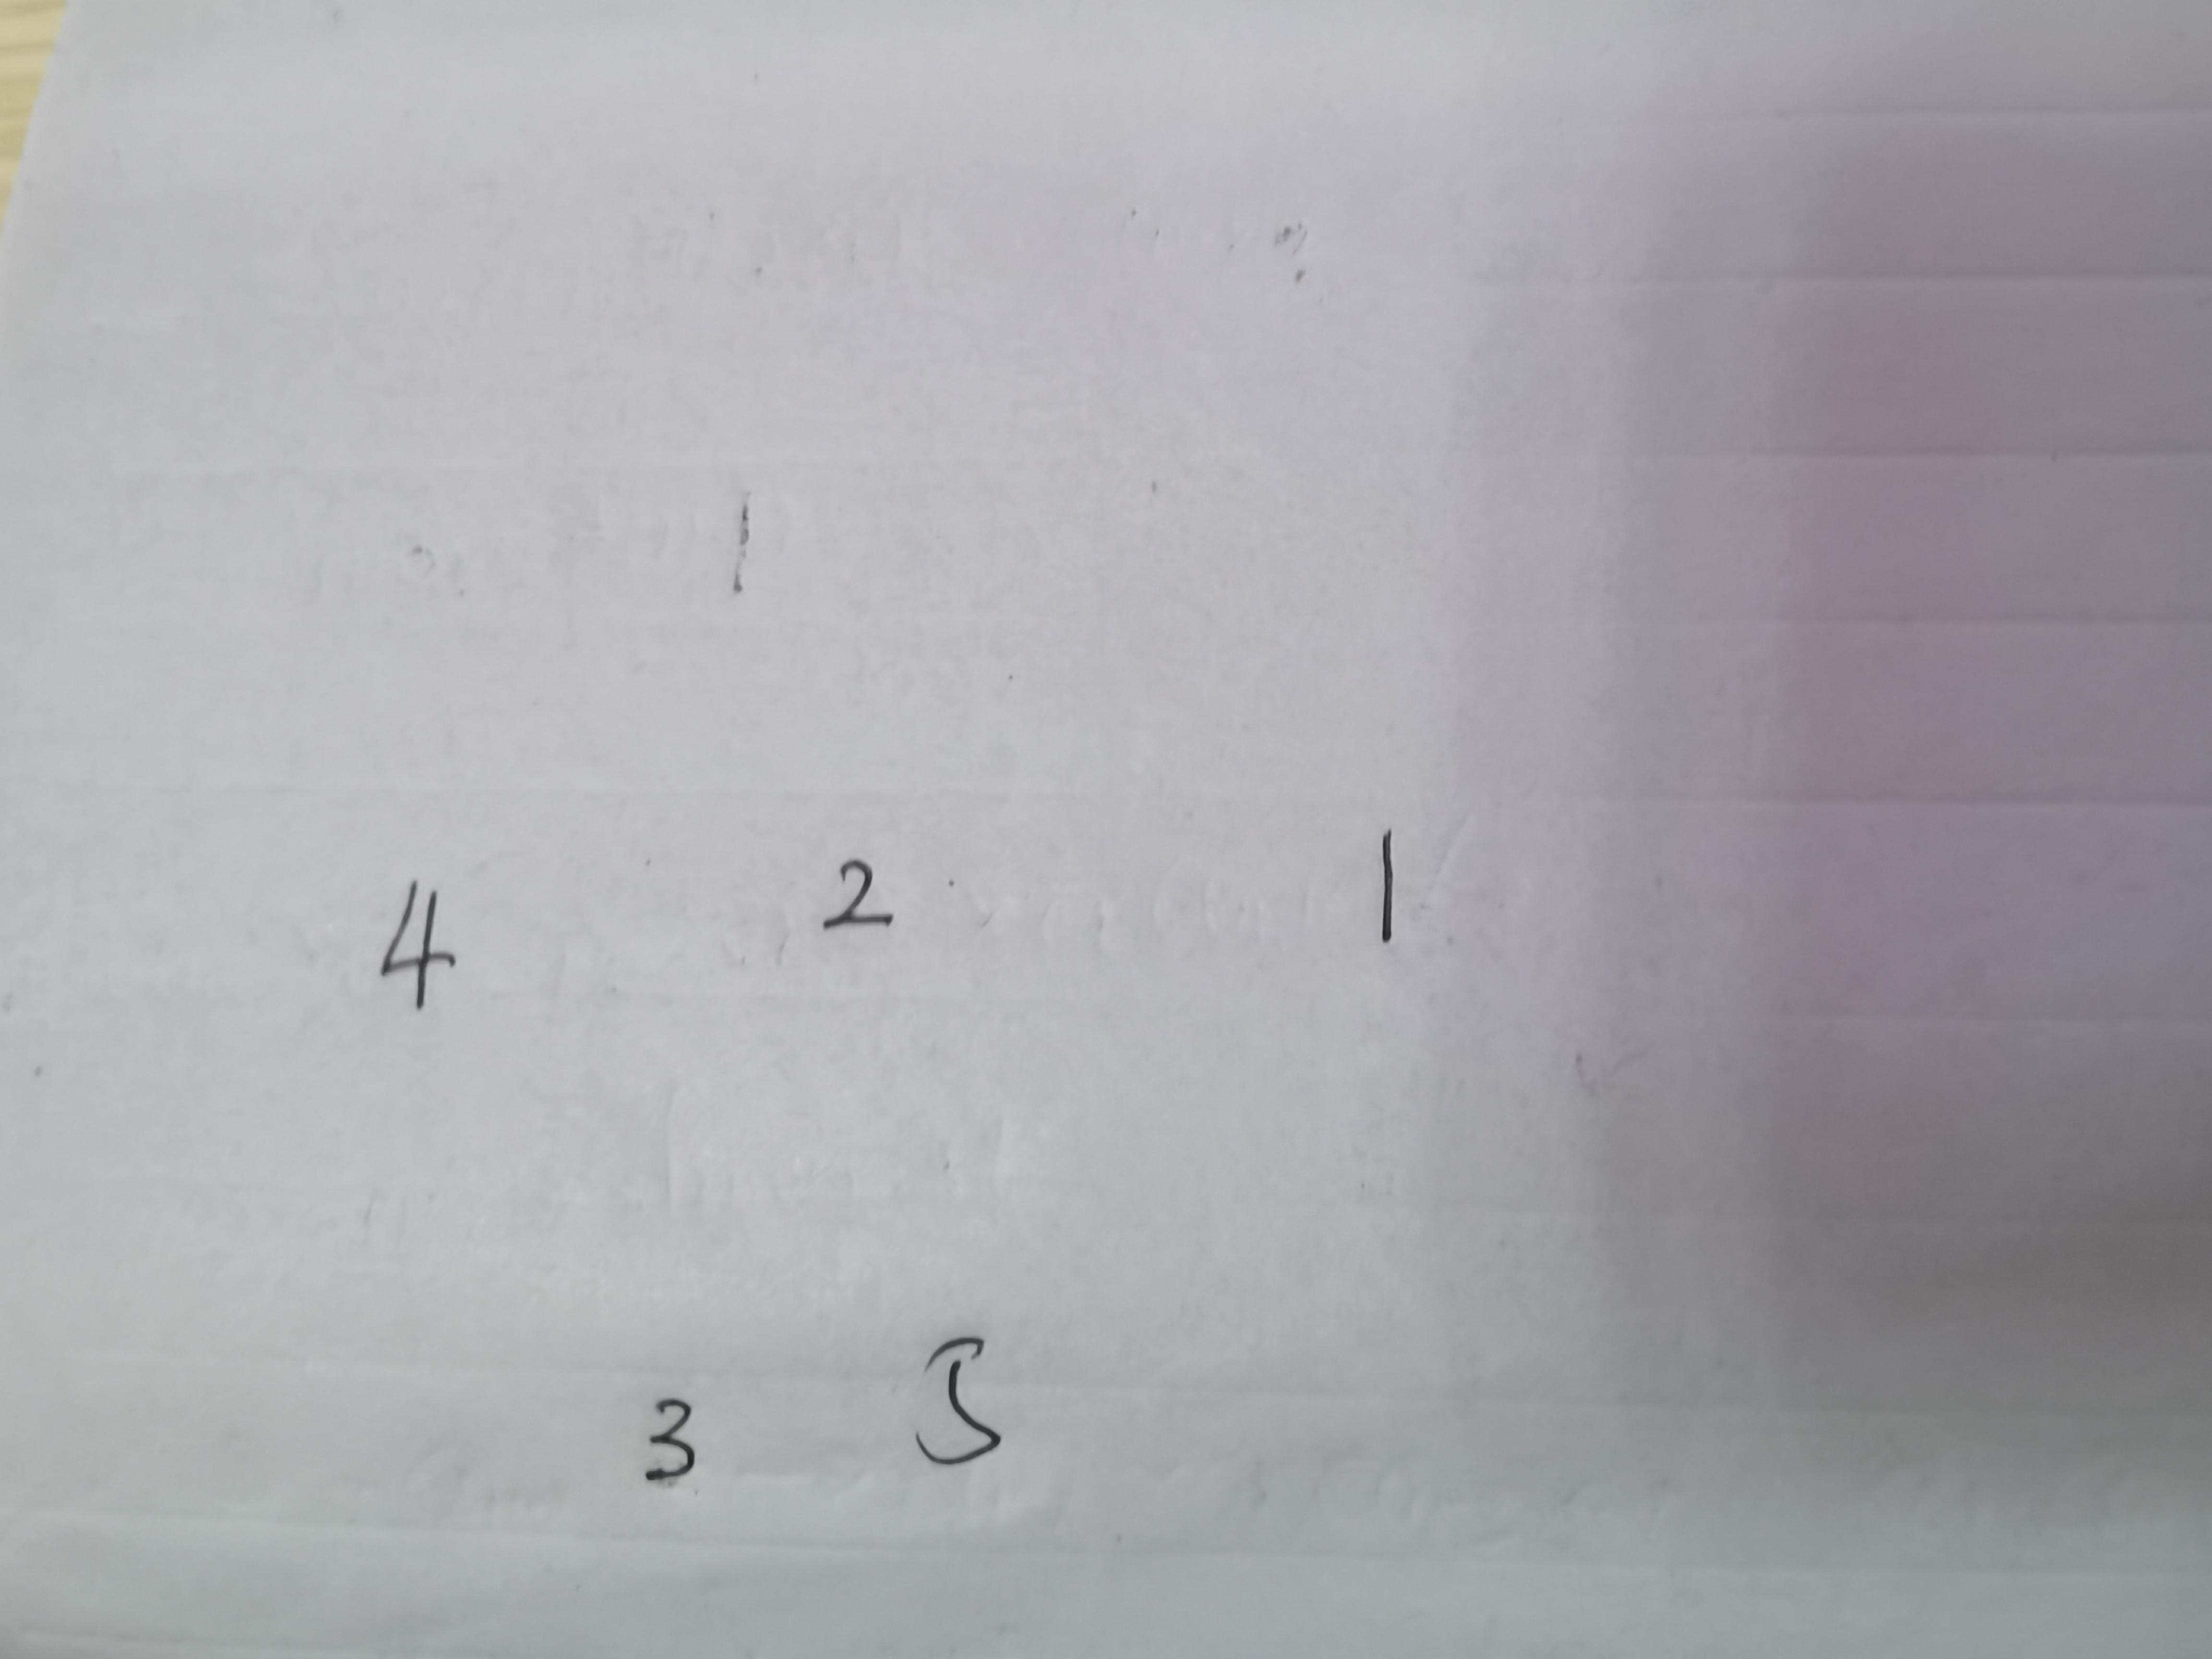 1
4 2 1
3 5